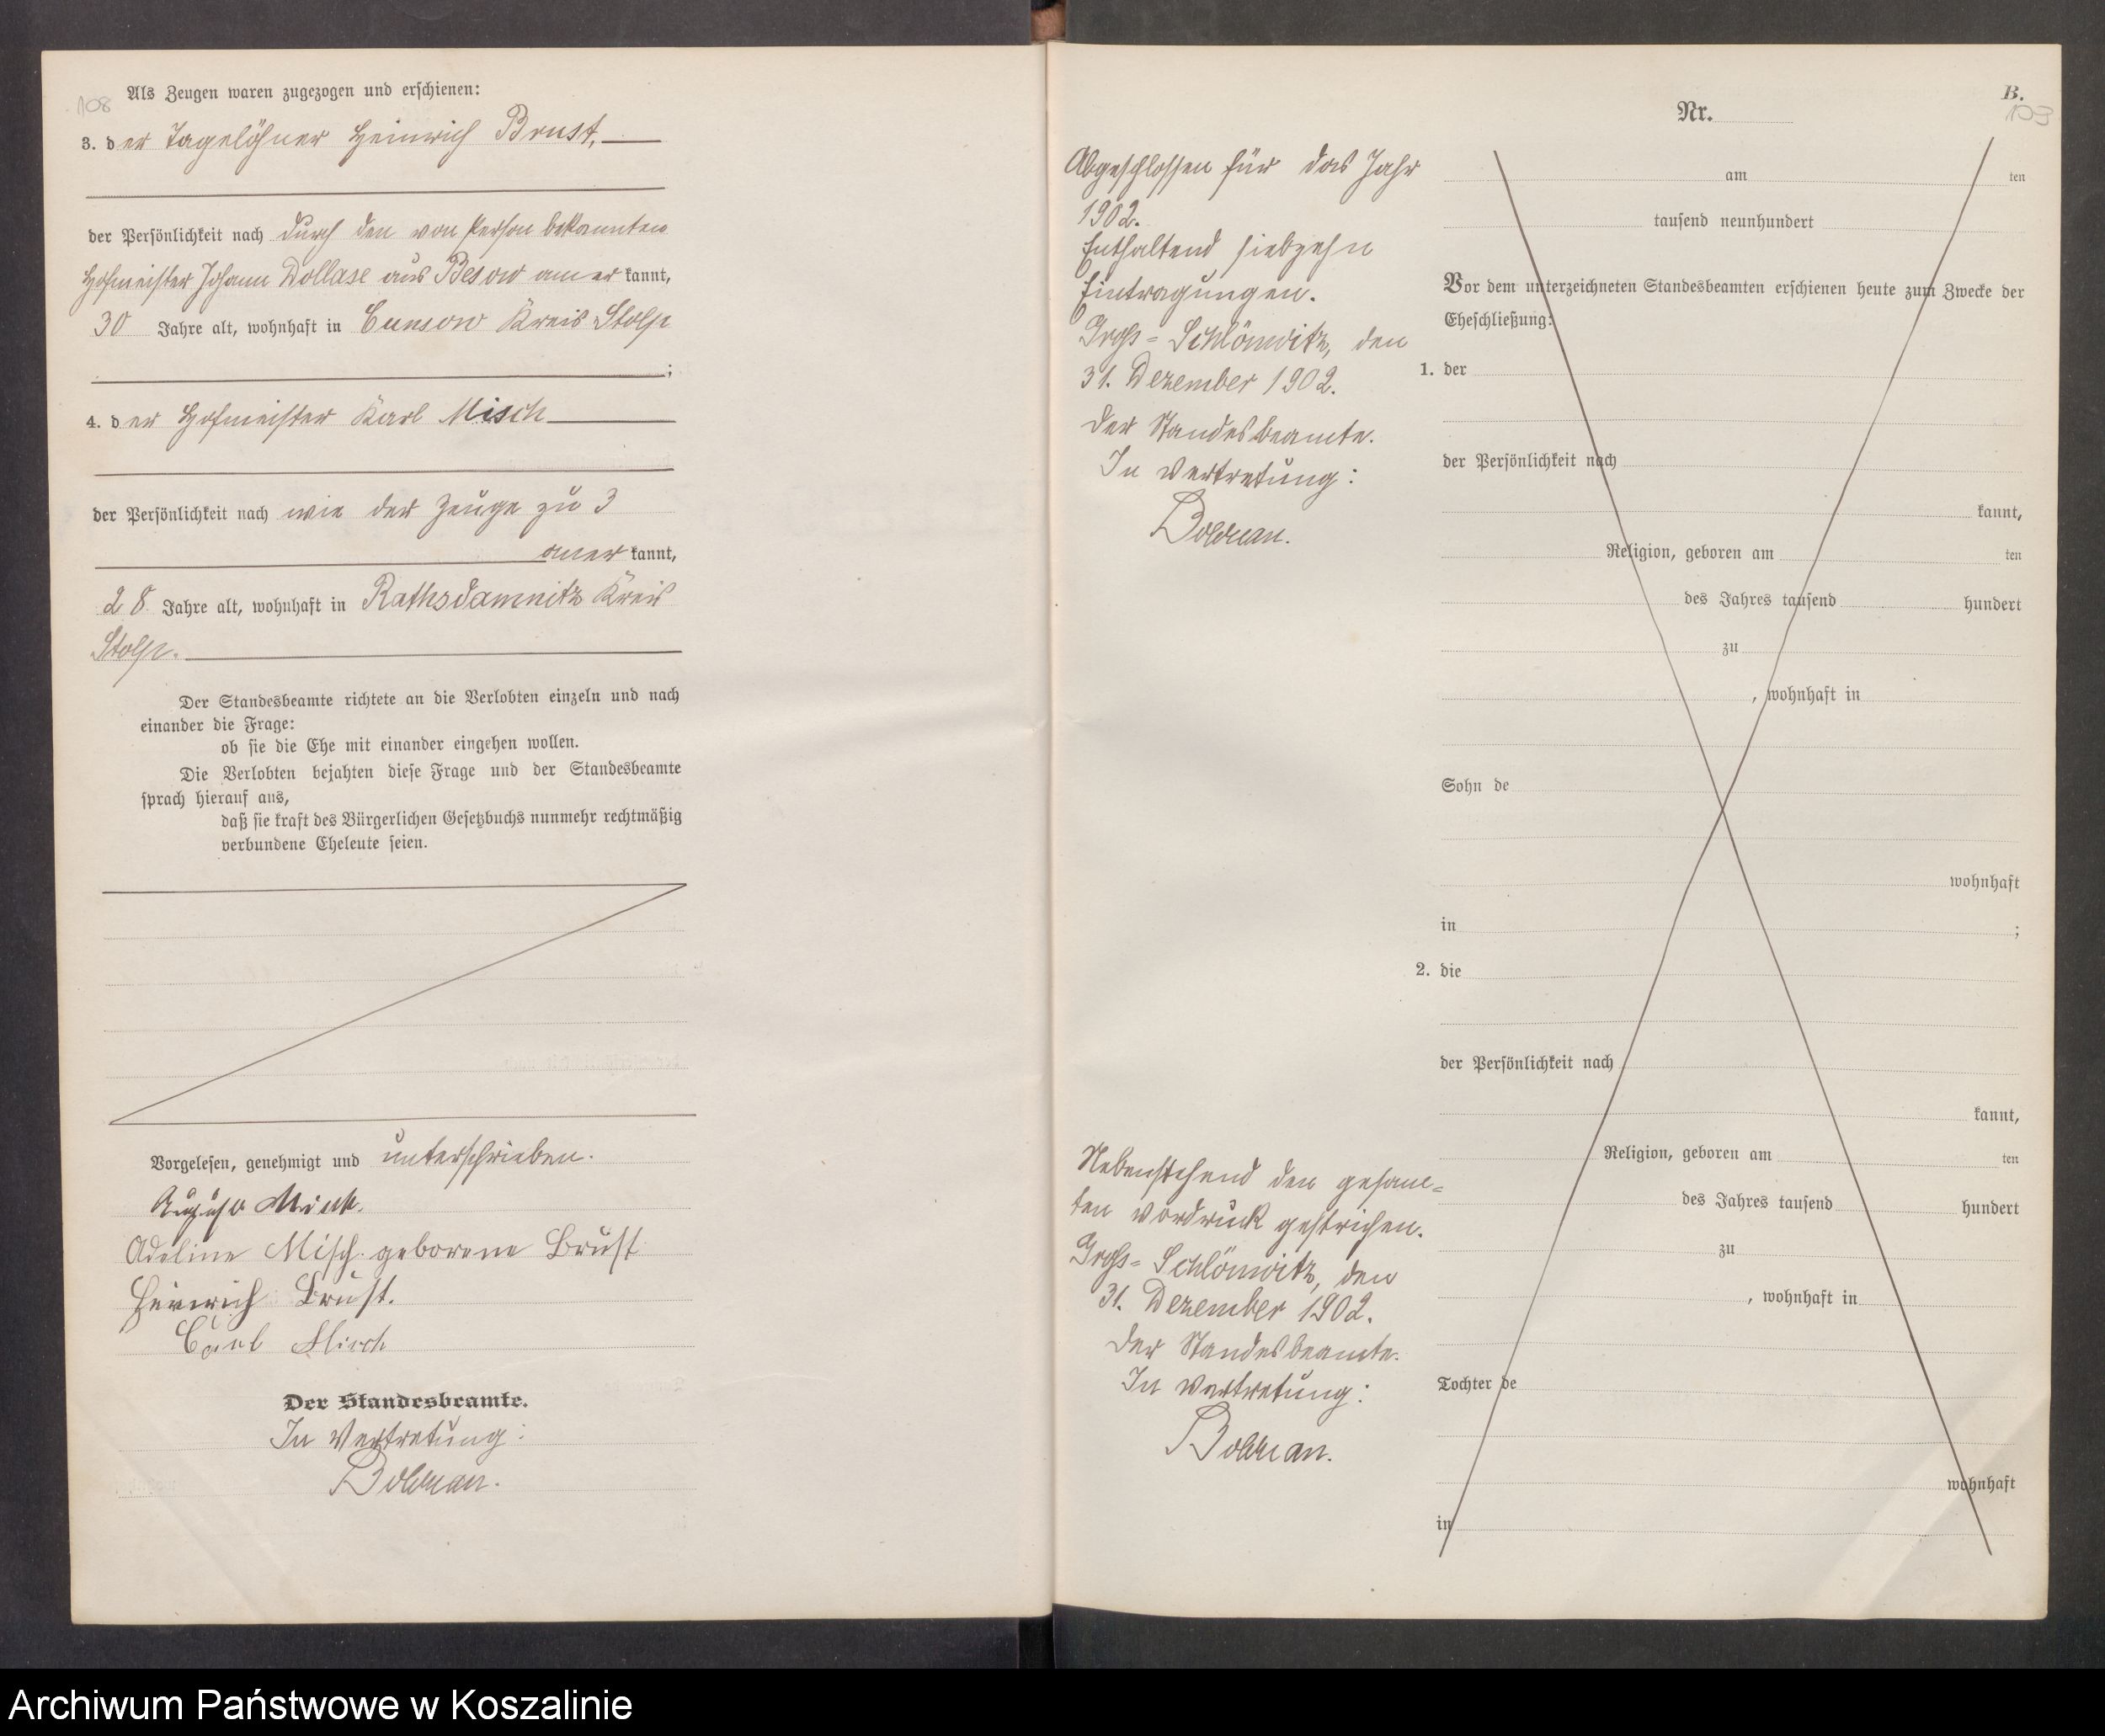 108
Als Zeugen waren zugezogen und erschienen:
3. der Tagelöhner Heinrich Brust,
der Persönlichkeit nach durch den von Person bekannten
Hofmeister Johann Dollase aus Besow anerkannt,
30 Jahre alt, wohnhaft in Cunsow Kreis Stolp
;
4. der Hofmeister Karl Misch
der Persönlichkeit nach wie der Zeuge zu 3
anerkannt,
28 Jahre alt, wohnhaft in Rathsdamnitz Kreis
Stolp.
Der Standesbeamte richtete an die Verlobten einzeln und nach
einander die Frage:
ob sie die Ehe mit einander eingehen wollen.
Die Verlobten bejahten diese Frage und der Standesbeamte
sprach hierauf aus,
daß sie kraft des Bürgerlichen Gesetzbuchs nunmehr rechtmäßig
verbundene Eheleute seien.
Vorgelesen, genehmigt und unterschrieben.
August Misch.
Adeline Misch geborene Brust
Heinrich Brust.
Carl Misch
Der Standesbeamte.
In Vertretung:
Abgeschlossen für das Jahr
1902.
Enthaltend siebzehn
Eintragungen.
Gross-Schlönwitz, den
31. Dezember 1902.
Der Standesbeamte.
In Vertretung:
Nebenstehend den gesam-
ten Vordruck gestrichen.
Gross-Schlönwitz, den
31. Dezember 1902.
Der Standesbeamte.
In Vertretung:
B.
103
Nr.
am ten
tausend neunhundert
Vor dem unterzeichneten Standesbeamten erschienen heute zum Zwecke der
Eheschließung:
1. der
der Persönlichkeit nach
kannt,
Religion, geboren am ten
des Jahres tausend hundert
zu
, wohnhaft in
Sohn de
wohnhaft
in ;
2. die
der Persönlichkeit nach
kannt,
Religion, geboren am ten
des Jahres tausend hundert
zu
, wohnhaft in
Tochter de
wohnhaft
in
Archiwum Państwowe w Koszalinie